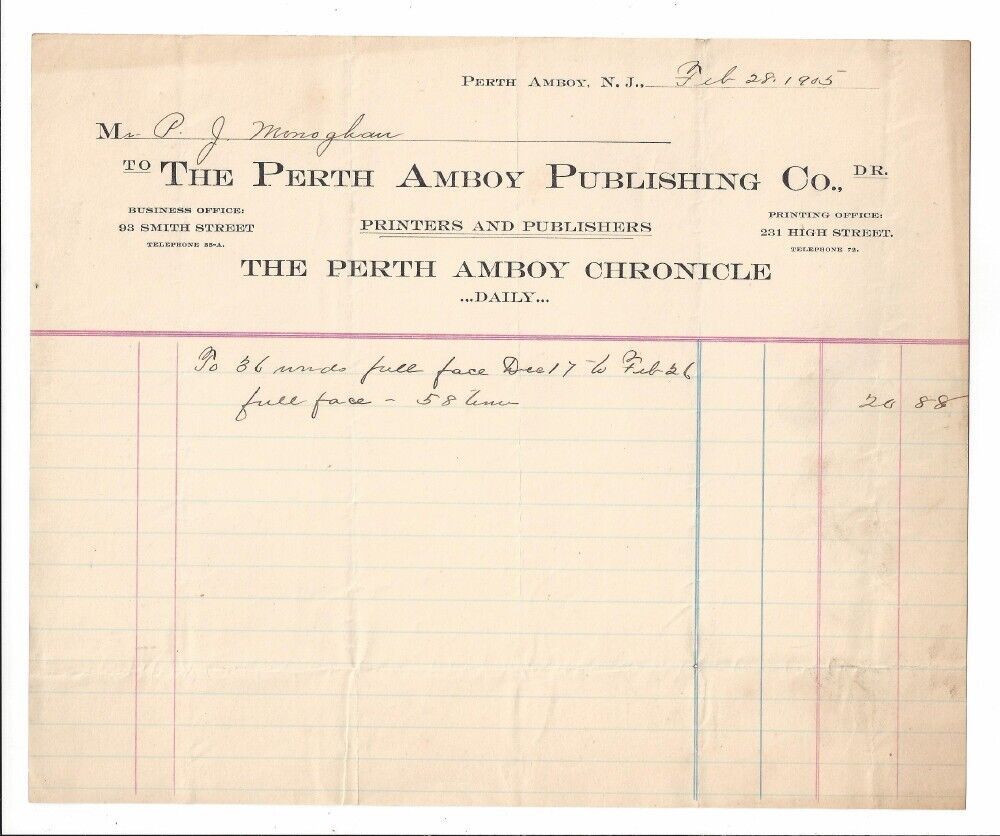 PERTH AMBOY, N. J., Feb 28. 1905
Mr P. J. Monoghan
TO THE PERTH AMBOY PUBLISHING CO., DR.
BUSINESS OFFICE:
93 SMITH STREET
TELEPHONE 55-A.
PRINTERS AND PUBLISHERS
PRINTING OFFICE:
231 HIGH STREET.
TELEPHONE 72.
THE PERTH AMBOY CHRONICLE
...DAILY...
To 36 words full face Dec 17 to Feb 26
full face - 58 times 20 88